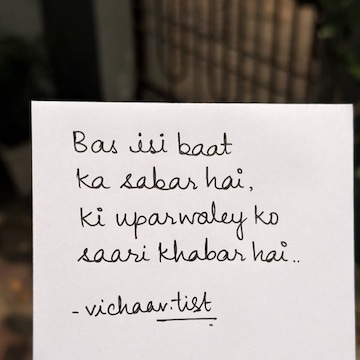 Bas isi baat
ka sabar hai,
ki uparwaley ko
saari khabar hai..
- vichaav.tist